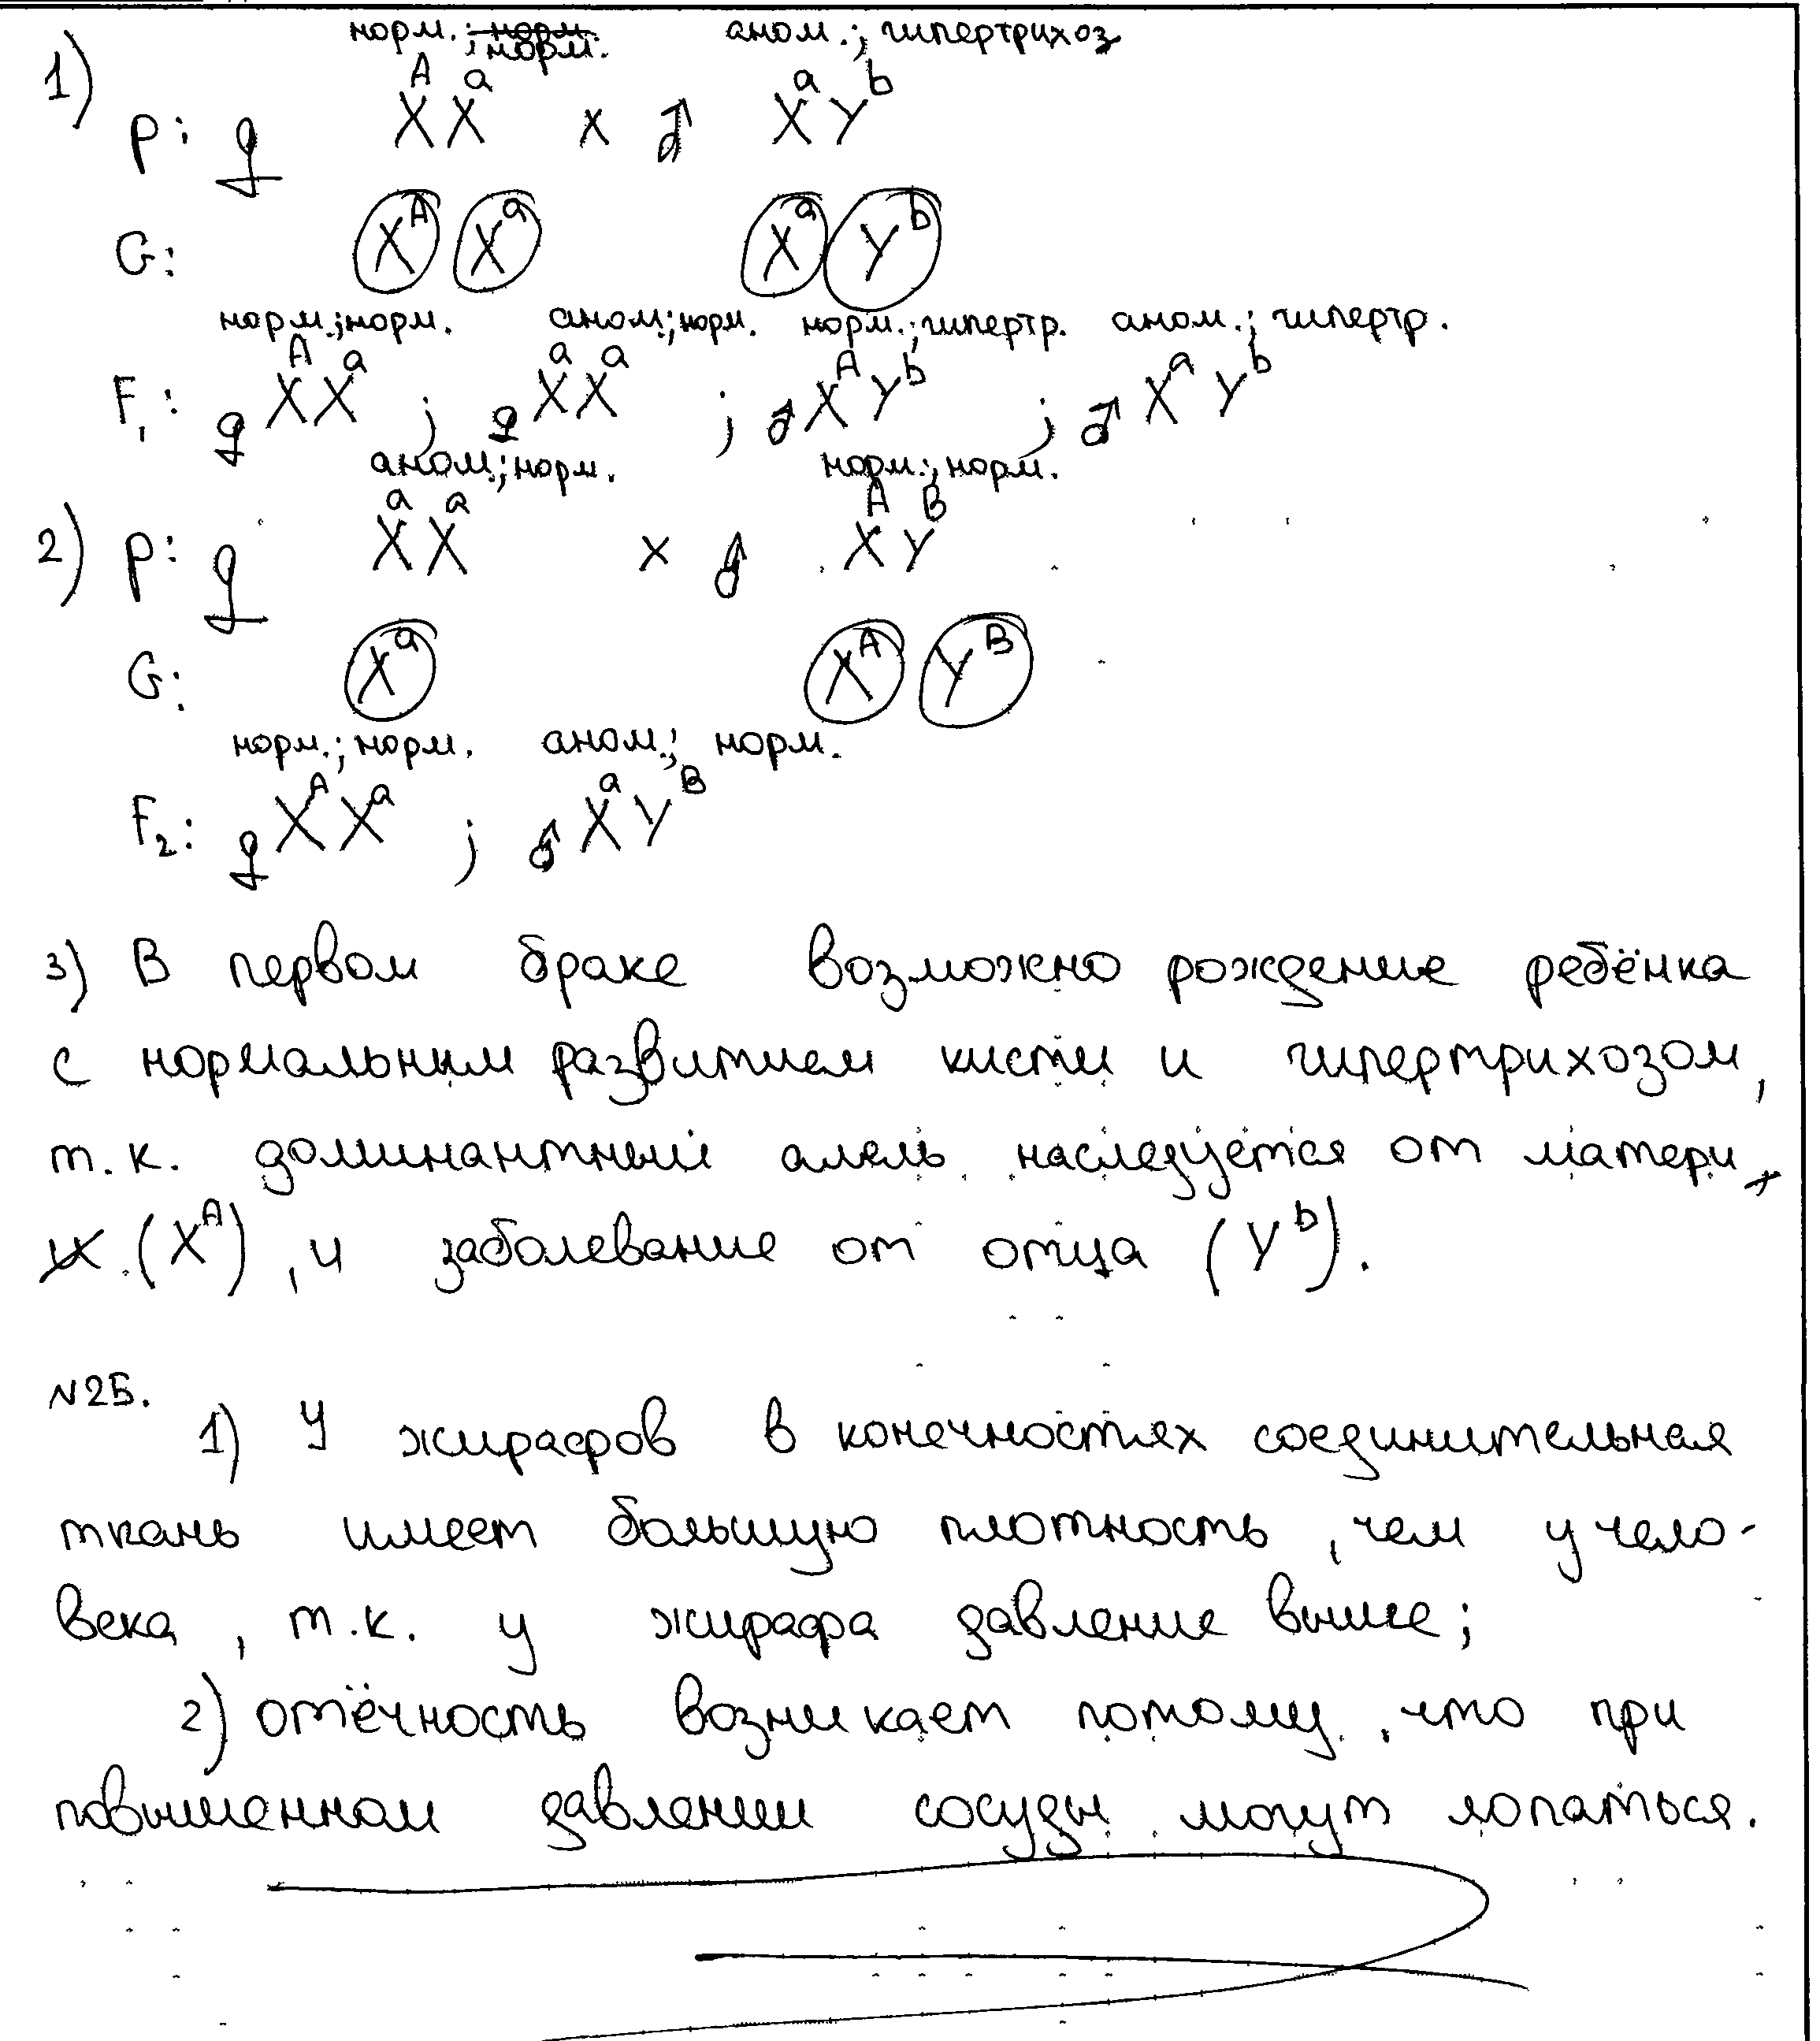 норм.; норм. аном.; гипертрихоз
1) P: ♀ XᴬXᵃ x ♂ XᵃYᵇ
G: Xᴬ Xᵃ Xᵃ Yᵇ
норм.; норм. аном.; норм. норм.; гипертр. аном.; гипертр.
F₁: ♀ XᴬXᵃ ; ♀ XᵃXᵃ ; ♂ XᴬYᵇ ; ♂ XᵃYᵇ
аном.; норм. норм.; норм.
2) P: ♀ XᵃXᵃ x ♂ XᴬYᴮ
G: Xᵃ Xᴬ Yᴮ
норм.; норм. аном.; норм.
F₂: ♀ XᴬXᵃ ; ♂ XᵃYᴮ
3) В первом браке возможно рождение ребёнка
с нормальным развитием кисти и гипертрихозом,
т.к. доминантный алель наследуется от матери
(Xᴬ), и заболевание от отца (Yᵇ).
№25.
1) У жирафов в конечностях соединительная
ткань имеет большую плотность, чем у чело-
века, т.к. у жирафа давление выше;
2) отёчность возникает потому, что при
повышенном давлении сосуды могут лопаться.